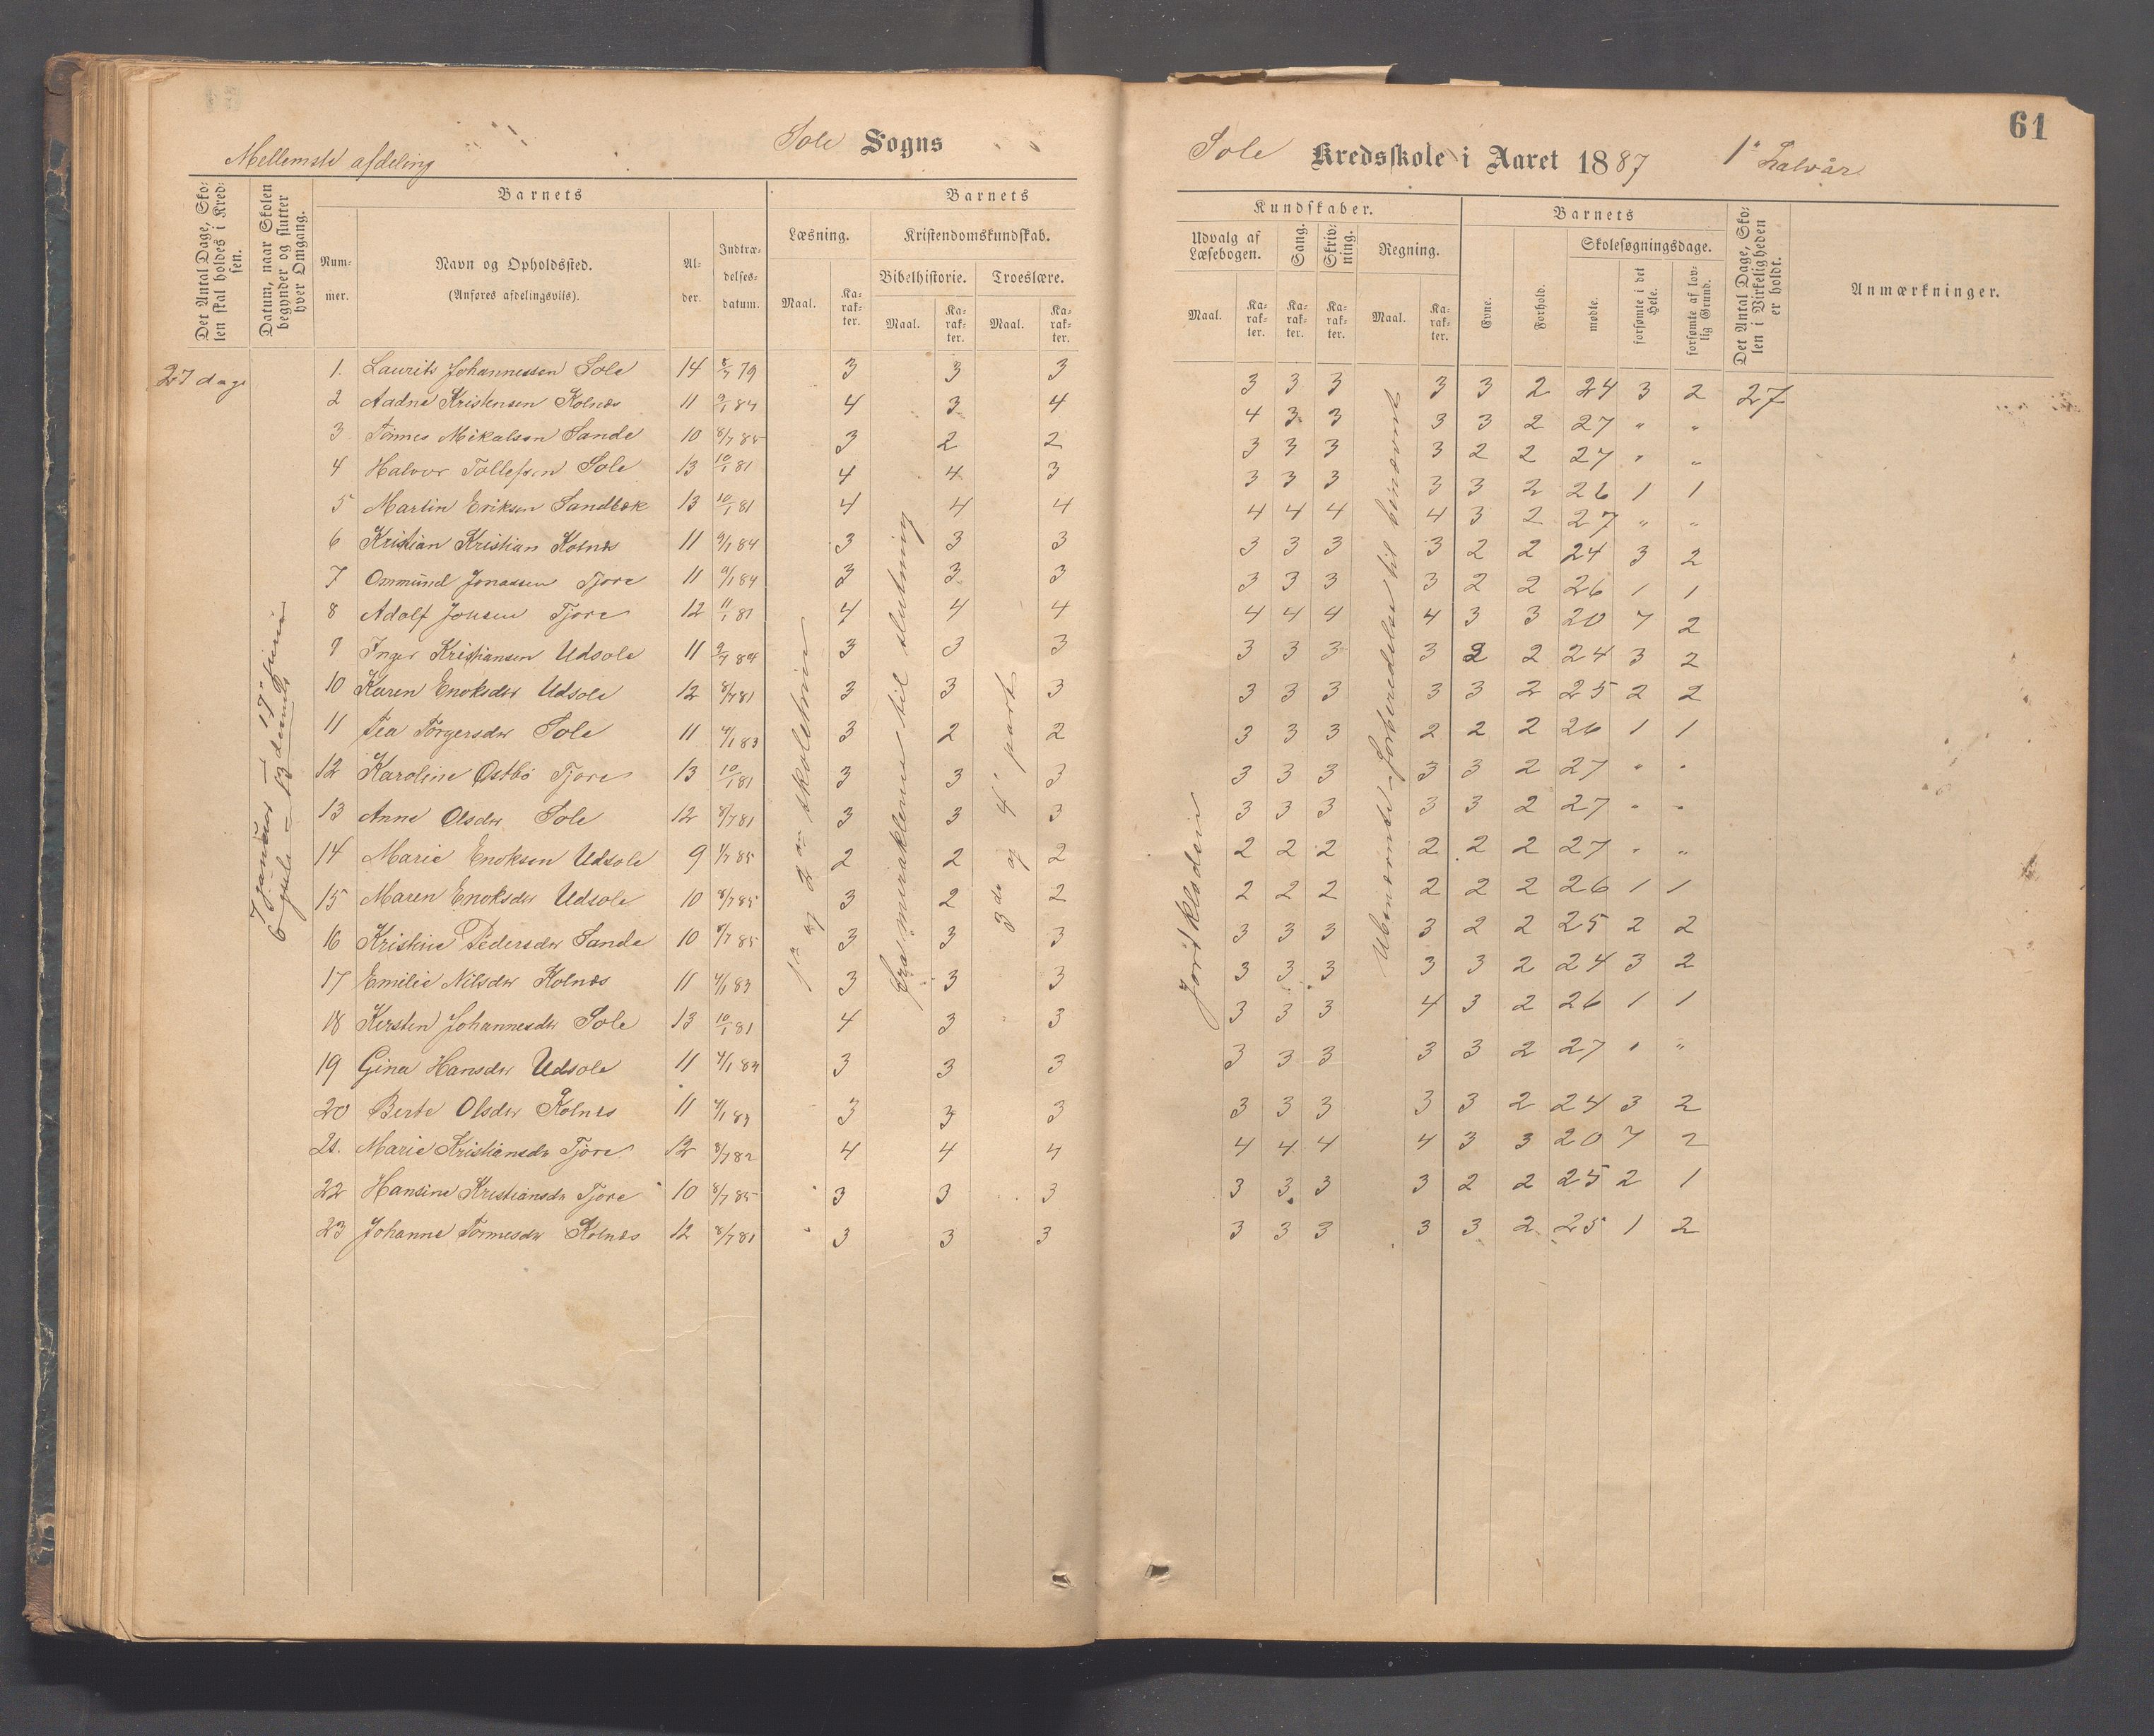 Mellemste afdeling
Sole Sogns
Sole Kredsskole i Aaret 1887 1ste halvår
61
Det Antal Dage, Skolen skal holdes i Kredsen.
Datum, naar Skolen begynder og slutter hver Omgang.
Barnets
Nummer.
Navn og Opholdssted.
(Anføres afdelingsviis).
Alder.
Indtrædelsesdatum.
Barnets
Læsning.
Maal.
Karakter.
Kristendomskundskab.
Bibelhistorie.
Maal.
Karakter.
Troeslære.
Maal.
Karakter.
Kundskaber.
Udvalg af Læsebogen.
Maal.
Karakter.
Sang.
Karakter.
Skrivning.
Karakter.
Regning.
Maal.
Karakter.
Barnets
Evne.
Forhold.
Skolesøgningsdage.
mødte.
forsømte i det Hele.
forsømte af lovlig Grund.
Det Antal Dage, Skolen i Virkeligheden er holdt.
Anmærkninger.
27 dage
7 januar – 17 juni
1ste og 2den skoletrin
fra miraklerne til slutning
3de og 4' part
Jordkloden
Ubenævnte. Forberedelse til benævnt
1. Laurits Johannessen Sole 14 8/7 79 3 3 3 3 3 3 3 3 2 24 3 2 27
2 Aadne Kristensen Kolnes 11 9/1 84 4 3 4 4 3 3 3 3 2 27 " "
3 Tönnes Mikalsen Sande 10 8/7 85 3 2 2 3 3 3 3 2 2 27 " "
4 Halvor Tollefsen Sole 13 10/1 81 4 4 3 3 3 3 3 3 2 26 1 1
5 Martin Eriksen Sandbæk 13 10/1 81 4 4 4 4 4 4 4 3 2 27 " "
6 Kristian Kristian Kolnes 11 9/1 84 3 3 3 3 3 3 3 2 2 24 3 2
7 Ommund Jonassen Tjore 11 9/1 84 3 3 3 3 3 3 3 2 2 26 1 1
8 Adolf Jonsen Tjore 12 11/1 81 4 4 4 4 4 4 4 3 3 20 7 2
9 Inger Kristiansen Udsole 11 9/7 84 3 3 3 3 3 3 3 2 2 24 3 2
10 Karen Enoksdtr Udsole 12 8/7 81 3 3 3 3 3 3 3 3 2 25 2 2
11 Tea Torgersdtr Sole 11 4/1 83 3 2 2 3 3 3 2 2 2 26 1 1
12 Karoline Østbö Tjore 13 10/1 81 3 3 3 3 3 3 3 3 2 27 " "
13 Anne Olsdtr Sole 12 8/7 81 3 3 3 3 3 3 3 3 2 27 " "
14 Marie Enoksen Udsole 9 1/7 85 2 2 2 2 2 2 2 2 2 27 " "
15 Maren Enoksdtr Udsole 10 8/7 85 3 2 2 2 2 2 2 2 2 26 1 1
16 Kristine Pedersdtr Sande 10 8/7 85 3 3 3 3 3 3 3 2 2 25 2 2
17 Emilie Nilsdtr Kolnes 11 4/1 83 3 3 3 3 3 3 3 3 2 24 3 2
18 Kersten Johannesdtr Sole 13 10/1 81 4 3 3 3 3 3 4 3 2 26 1 1
19 Gina Hansdtr Udsole 11 4/1 83 3 3 3 3 3 3 3 3 2 27 " "
20 Berte Olsdtr Kolnes 11 4/1 83 3 3 3 3 3 3 3 3 2 24 3 2
21. Marie Kristiansdtr Tjore 12 8/7 82 4 4 4 4 4 4 4 3 3 20 7 2
22 Hansine Kristiansdtr Tjore 10 8/7 85 3 3 3 3 3 3 3 2 2 25 2 1
23 Johanne Tönnesdtr Kolnes 12 8/7 81 3 3 3 3 3 3 3 3 2 25 1 2